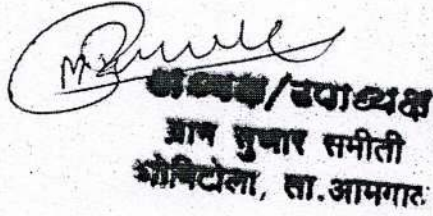 अध्यक्ष/उपाध्यक्ष
ग्राम सुधार समीती
ता.आमगाव